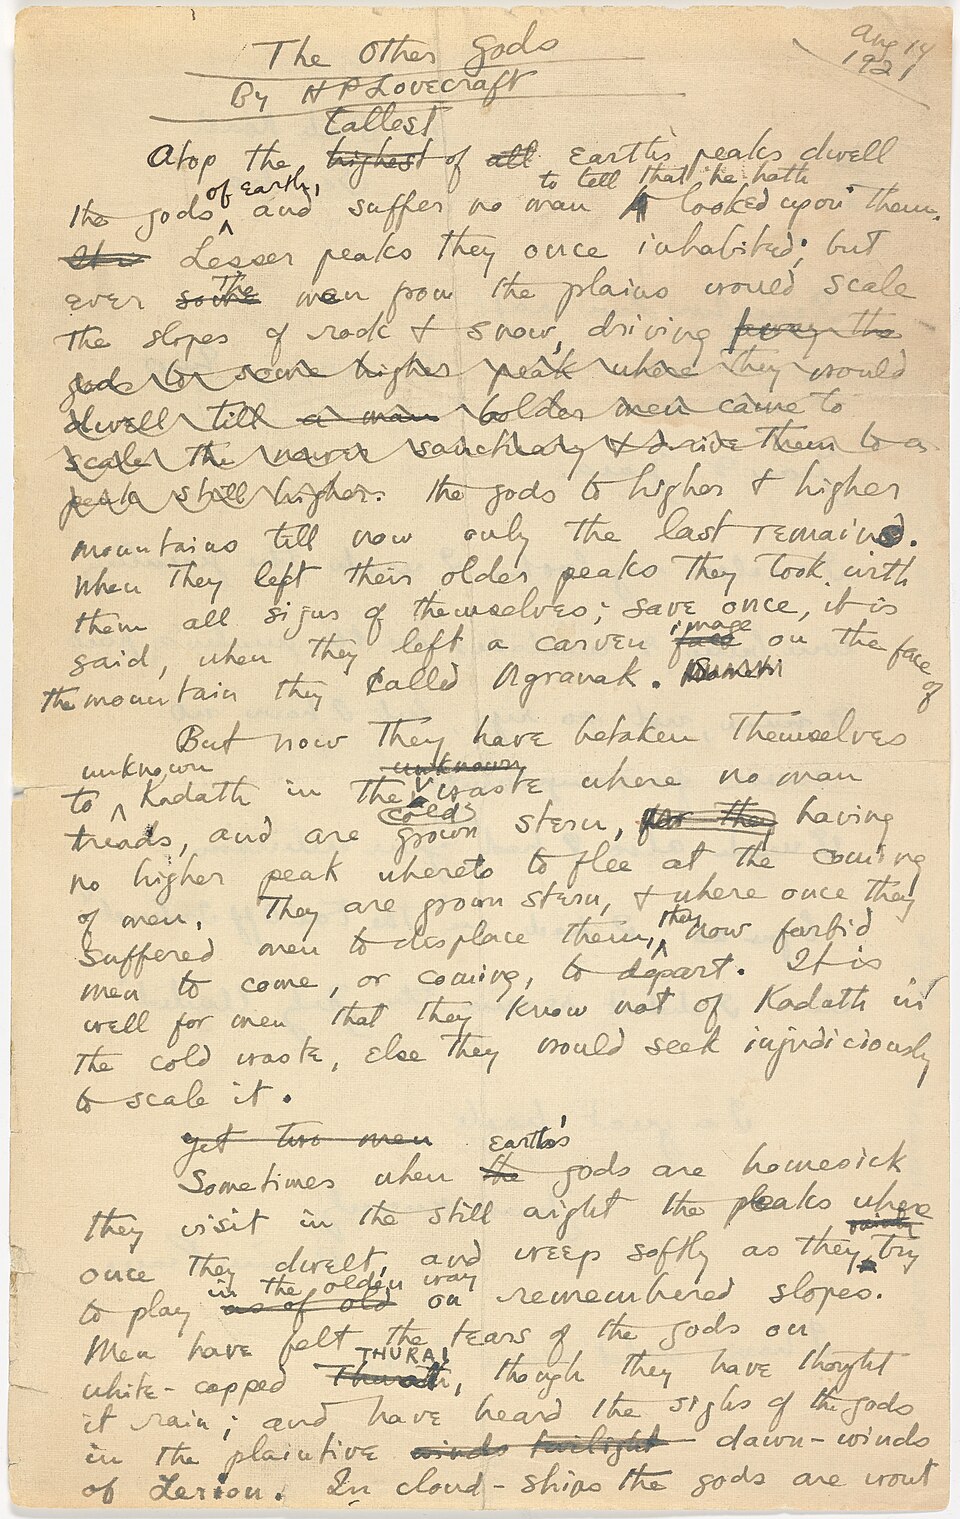 The Other Gods
Aug 14
1921
By H P Lovecraft
tallest
Atop the highest of all Earth's peaks dwell
of earth, to tell that he hath
the gods and suffer no man looked upon them.
Lesser peaks they once inhabited; but
the
ever some men from the plains would scale
the slopes of rock & snow, driving away the
gods to some higher peak where they would
dwell till a man bolder men came to
scale the newer sanctuary & drive them to a
peak still higher. the gods to higher & higher
mountains till now only the last remains.
When they left their older peaks they took with
them all signs of themselves; save once, it is
image
said, when they left a carven face on the face of
the mountain they called Ngranek.
But now they have betaken themselves
unknown unknown
to Kadath in the waste where no man
cold
treads, and are grown stern, for they having
no higher peak whereto to flee at the coming
of men. They are grown stern, & where once they
they
suffered men to displace them, now forbid
men to come, or coming, to depart. It is
well for men that they know not of Kadath in
the cold waste, else they would seek injudiciously
to scale it.
yet two men
earth's
Sometimes when the gods are homesick
they visit in the still night the peaks where
once they dwelt, and weep softly as they try
in the olden way
to play as of old on remembered slopes.
Men have felt the tears of the gods on
THURAI
white-capped Thurath, though they have thought
it rain; and have heard the sighs of the gods
in the plaintive winds twilight dawn-winds
of Lerion. In cloud-ships the gods are wont